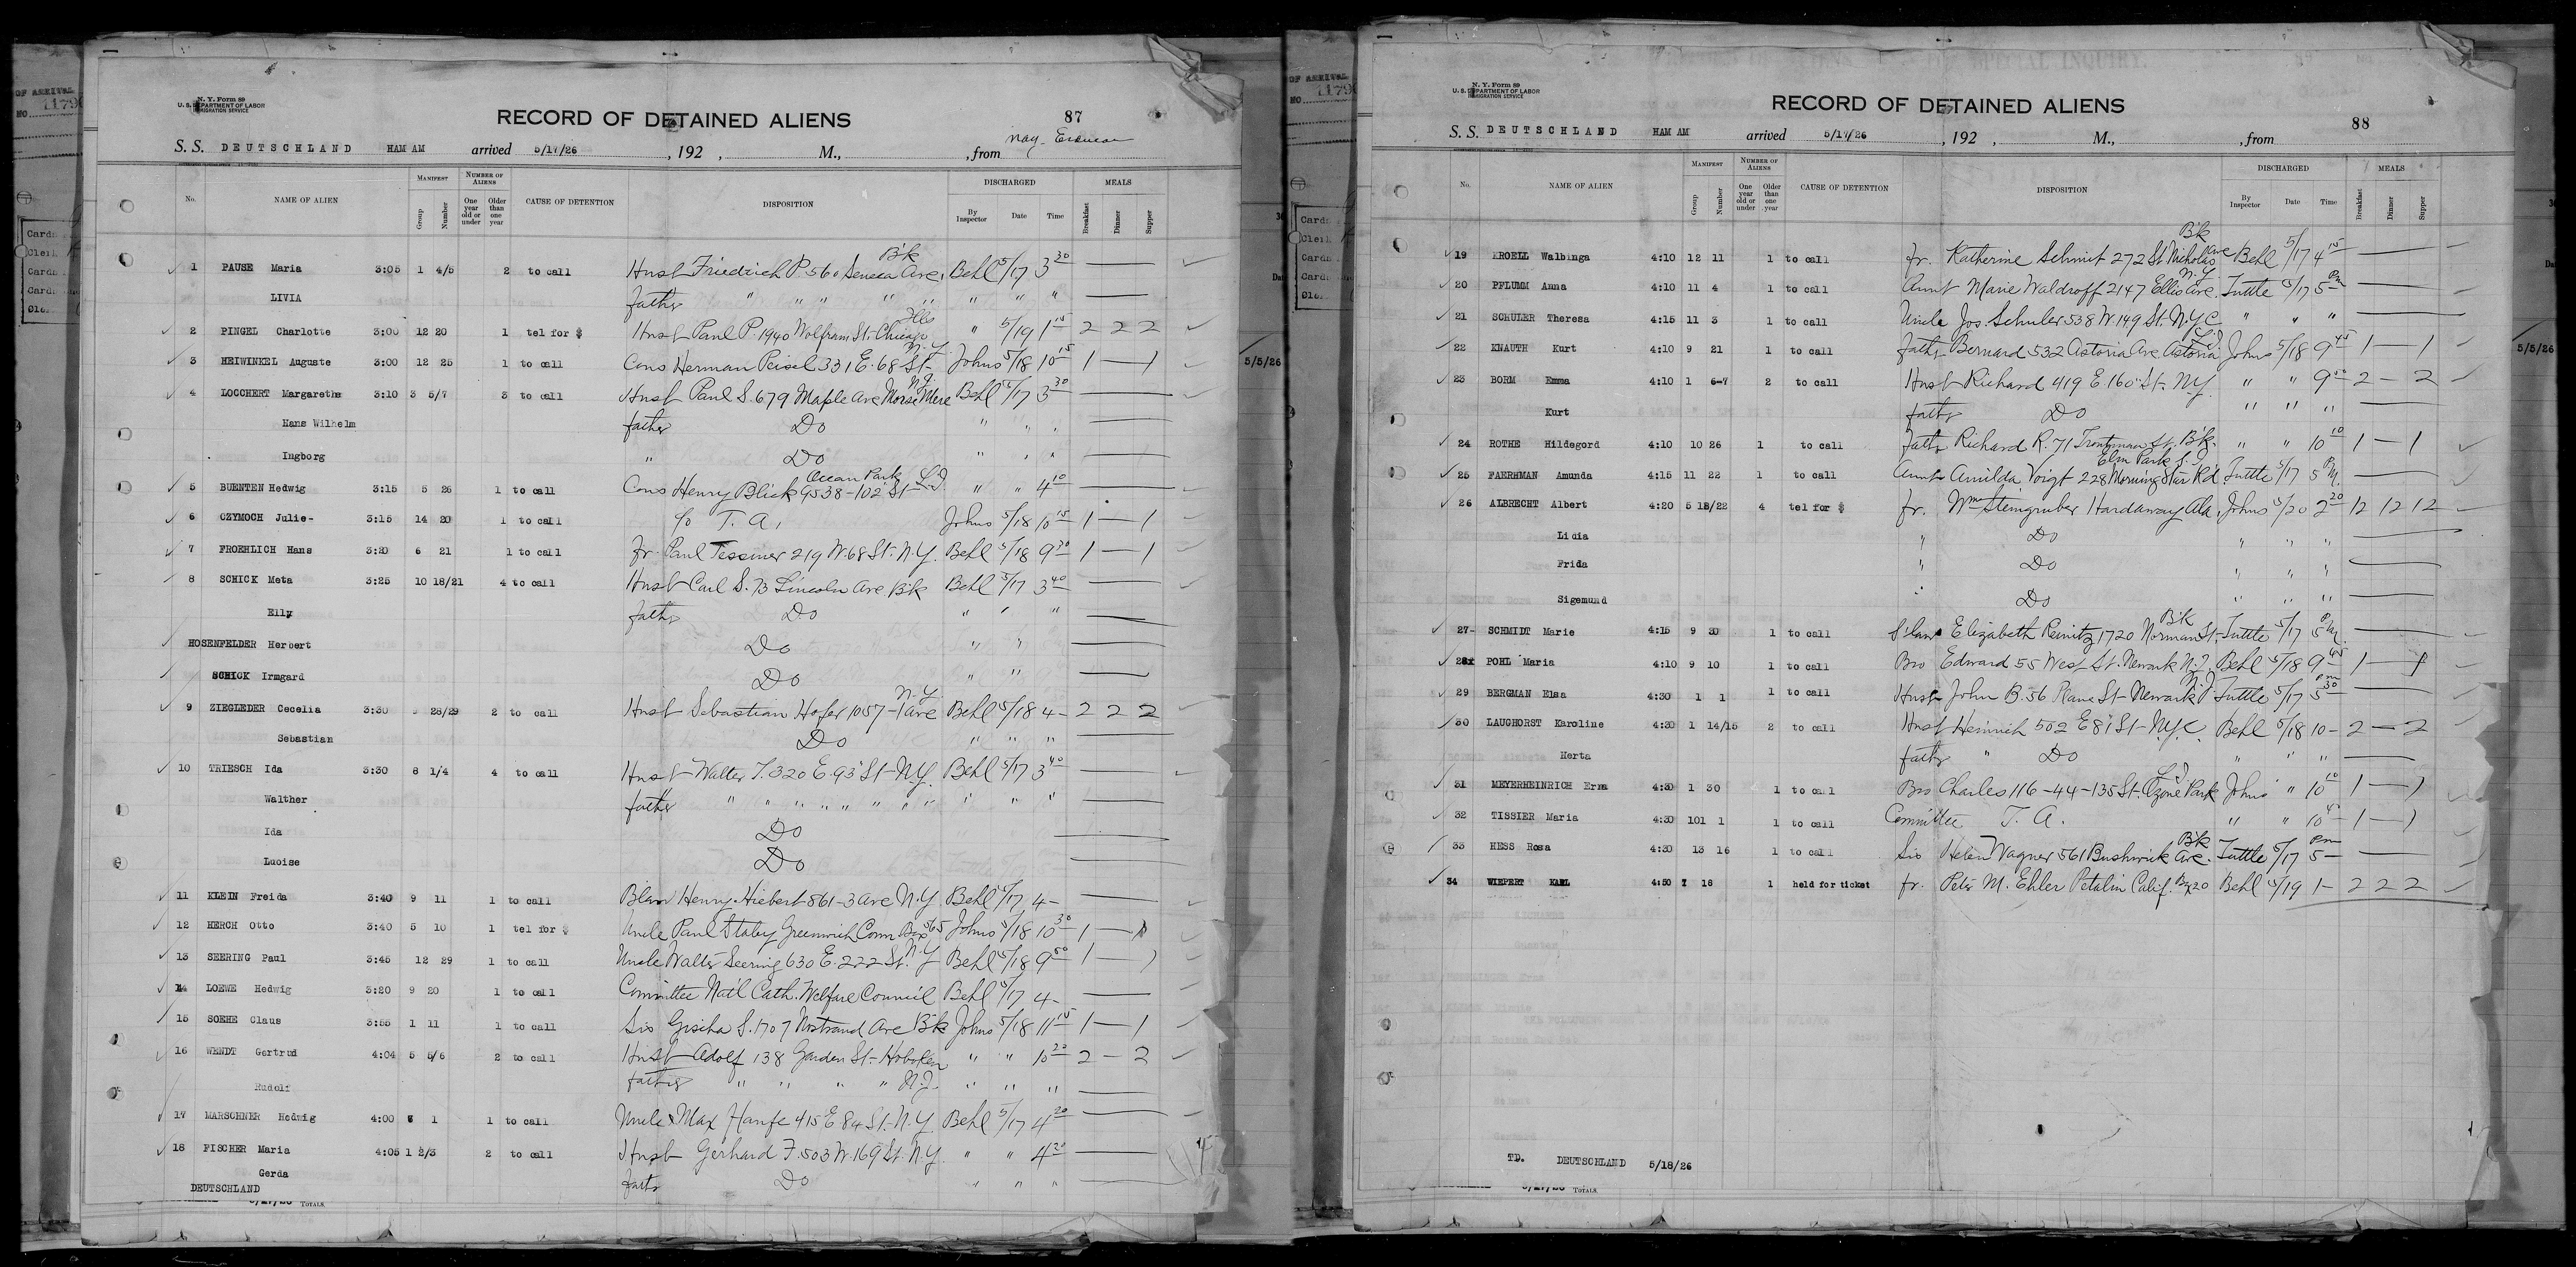 OF ARRIVAL
NO. 1179
N. Y. Form 89
U. S. DEPARTMENT OF LABOR
IMMIGRATION SERVICE
RECORD OF DETAINED ALIENS
87
S. S. DEUTSCHLAND HAM AM arrived 5/17/26, 192 , M., , from
No. NAME OF ALIEN MANIFEST Group Number NUMBER OF ALIENS One year old or under Older than one year CAUSE OF DETENTION DISPOSITION DISCHARGED By Inspector Date Time MEALS Breakfast Dinner Supper
1 PAUSE Maria 3:05 1 4/5 2 to call Husb Friedrich P. 560 Seneca Ave, Bk Behl 5/17 3 30
LIVIA father " " " " " " " "
2 PINGEL Charlotte 3:00 12 20 1 tel for $ Husb Paul P. 1940 Wolfram St. Chicago Ills " 5/19 1 15 2 2 2
3 HEIWINKEL Auguste 3:00 12 25 1 to call Cous Herman Peisel 331 E. 68 St N.Y. Johns 5/18 10 15 1 — 1
4 LOCCHERT Margarethe 3:10 3 5/7 3 to call Husb Paul S. 679 Maple Ave Morse Mere N.J. Behl 5/17 3 30
Hans Wilhelm father Do " " "
" Ingborg " Do " " "
5 BUENTEN Hedwig 3:15 5 26 1 to call Cous Henry Blick 9538-102 St Ocean Park L.I. " " 4 10
6 CZYMOCH Julie- 3:15 14 20 1 to call c/o T. A. Johns 5/18 10 15 1 — 1
7 FROEHLICH Hans 3:20 6 21 1 to call Fr. Paul Tessmer 219 W. 68 St. N.Y. Behl 5/18 9 30 1 — 1
8 SCHICK Meta 3:25 10 18/21 4 to call Husb Carl S. 73 Lincoln Ave Bk Behl 5/17 3 40
Elly father Do " " "
HOSENFELDER Herbert Do " "
SCHICK Irmgard Do " "
9 ZIEGLEDER Cecelia 3:30 28/29 2 to call Husb Sebastian Hofer 1057-1 Ave N.Y. Behl 5/18 4- 2 2 2
Sebastian Do " " "
10 TRIESCH Ida 3:30 8 1/4 4 to call Husb Walter T. 320 E. 93 St N.Y. Behl 5/17 3 40
Walther father " " " " " " " " " " "
Ida Do
Luoise Do
11 KLEIN Freida 3:40 9 11 1 to call Blaw Henry Hiebert 561-3 Ave N.Y. Behl 5/17 4-
12 HERCH Otto 3:40 5 10 1 tel for $ Uncle Paul Staby Greenwich Conn Box 565 Johns 5/18 10 30 1 — 1
13 SEERING Paul 3:45 12 29 1 to call Uncle Walter Seering 630 E. 222 St. N.Y. Behl 5/18 9 50 1 — 1
14 LOEWE Hedwig 3:20 9 20 1 to call Committee Nat'l Cath. Welfare Council Behl 5/17 4-
15 SOEHE Claus 3:55 1 11 1 to call Sis Gisiha S. 1707 Nostrand Ave Bk Johns 5/18 11 15 1 — 1
16 WENDT Gertrud 4:04 5 5/6 2 to call Husb Adolf 138 Garden St- Hoboken " " 10 20 2 — 2
Rudolf father " " " " N.J. " " "
17 MARSCHNER Hedwig 4:00 1 1 to call Uncle Max Hanfe 415 E 84 St. N.Y. Behl 5/17 4 20
18 FISCHER Maria 4:05 1 2/3 2 to call Husb Gerhard F. 503 W. 169 St. N.Y. " " 4 30
Gerda father Do " " "
DEUTSCHLAND
TOTALS
5/5/26
OF ARRIVAL
NO. 1179
N. Y. Form 89
U. S. DEPARTMENT OF LABOR
IMMIGRATION SERVICE
RECORD OF DETAINED ALIENS
88
S. S. DEUTSCHLAND HAM AM arrived 5/17/26, 192 , M., , from
No. NAME OF ALIEN MANIFEST Group Number NUMBER OF ALIENS One year old or under Older than one year CAUSE OF DETENTION DISPOSITION DISCHARGED By Inspector Date Time MEALS Breakfast Dinner Supper
19 KROELL Walbinga 4:10 12 11 1 to call fr. Katherine Schmit 272 St Nicholas Ave Bk Behl 5/17 4 15
20 PFLUMM Anna 4:10 11 4 1 to call Aunt Marie Waldroff 2147 Ellis Ave. N.Y. Tuttle 5/17 5 Pm
21 SCHULER Theresa 4:15 11 3 1 to call Uncle Jos. Schuler 538 W. 149 St. N.Y.C " " "
22 KNAUTH Kurt 4:10 9 21 1 to call father Bernard 532 Astoria Ave Astoria L.I. Johns 5/18 9 45 1 — 1
23 BORM Emma 4:10 1 6-7 2 to call Husb Richard 419 E. 160 St- N.Y. " " 9 2 — 2
Kurt father Do " " "
24 ROTHE Hildegord 4:10 10 26 1 to call father Richard R. 71 Troutman St. Bk. " " 10 10 1 — 1
25 FAERHMAN Amunda 4:15 11 22 1 to call Aunt Amilda Voigt 228 Morning Star Rd. Elm Park S.I. Tuttle 5/17 5 PM.
26 ALBRECHT Albert 4:20 5 18/22 4 tel for $ fr. Wm Steingruber Hardaway Ala. Johns 5/20 2 20 12 12 12
Licia " Do " " "
Frida " Do " " "
Sigemund " Do " " "
27- SCHMIDT Marie 4:15 9 30 1 to call S'law Elizabeth Reinitz 1720 Norman St. Bk Tuttle 5/17 5 PM.
28x POHL Maria 4:10 9 10 1 to call Bro Edward 55 West St. Newark N.J. Behl 5/18 9 45 1 — 1
29 BERGMAN Elsa 4:30 1 1 1 to call Husb John B. 56 Plane St- Newark N.J. Tuttle 5/17 5 30 Pm
30 LAUGHORST Karoline 4:30 1 14/15 2 to call Husb Heinrich 502 E 81 St- N.Y.C. Behl 5/18 10- 2 — 2
Herta father " Do " " "
31 MEYERHEINRICH Erna 4:30 1 30 1 to call Bro Charles 116-44-135 St. Ozone Park L.I. Johns " 10 10 1 — 1
32 TISSIER Maria 4:30 101 1 1 to call Committee T. A. " " 10 45 1 — 1
33 HESS Rosa 4:30 13 16 1 to call Sis Helen Wagner 561 Bushwick Ave. Bk Tuttle 5/17 5 Pm
34 WIEPERT KARL 4:50 7 18 1 held for ticket fr. Peter M. Ehler Petalin Calif. Bx 20 Behl 5/19 1- 2 2 2
TD. DEUTSCHLAND 5/18/26
TOTALS
5/5/26